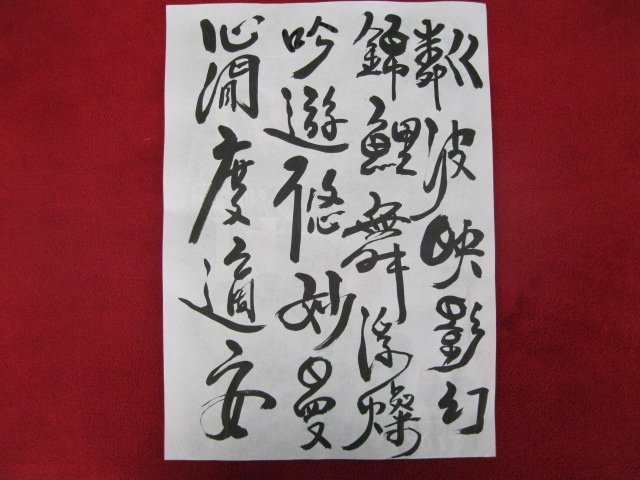 粼波映影幻
錦鯉舞浮燦
吟遊悠妙曼
心澗度適安